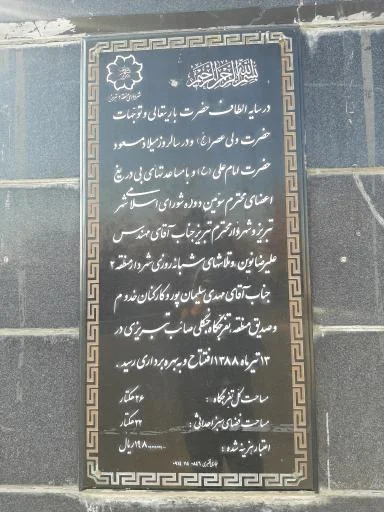 بسم الله الرحمن الرحیم
شهرداری منطقه ۲ تبریز
در سایه الطاف حضرت باریتعالی و توجهات
حضرت ولی عصر (عج) و در سالروز میلاد مسعود
حضرت امام علی (ع) و با مساعدتهای بی دریغ
اعضای محترم سومین دوره شورای اسلامی شهر
تبریز و شهردار محترم تبریز جناب آقای مهندس
علیرضا نوین ، و تلاشهای شبانه روزی شهردار منطقه ۲
جناب آقای مهدی سلیمان پور و کارکنان خدوم
و صدیق منطقه ، تفرجگاه جنگلی صائب تبریزی در
۱۳ تیر ماه ۱۳۸۸ افتتاح و به بهره برداری رسید .
مساحت کل تفرجگاه : ۲۶ هکتار
مساحت فضای سبز احداثی : ۲۲ هکتار
اعتبار هزینه شده : ریال